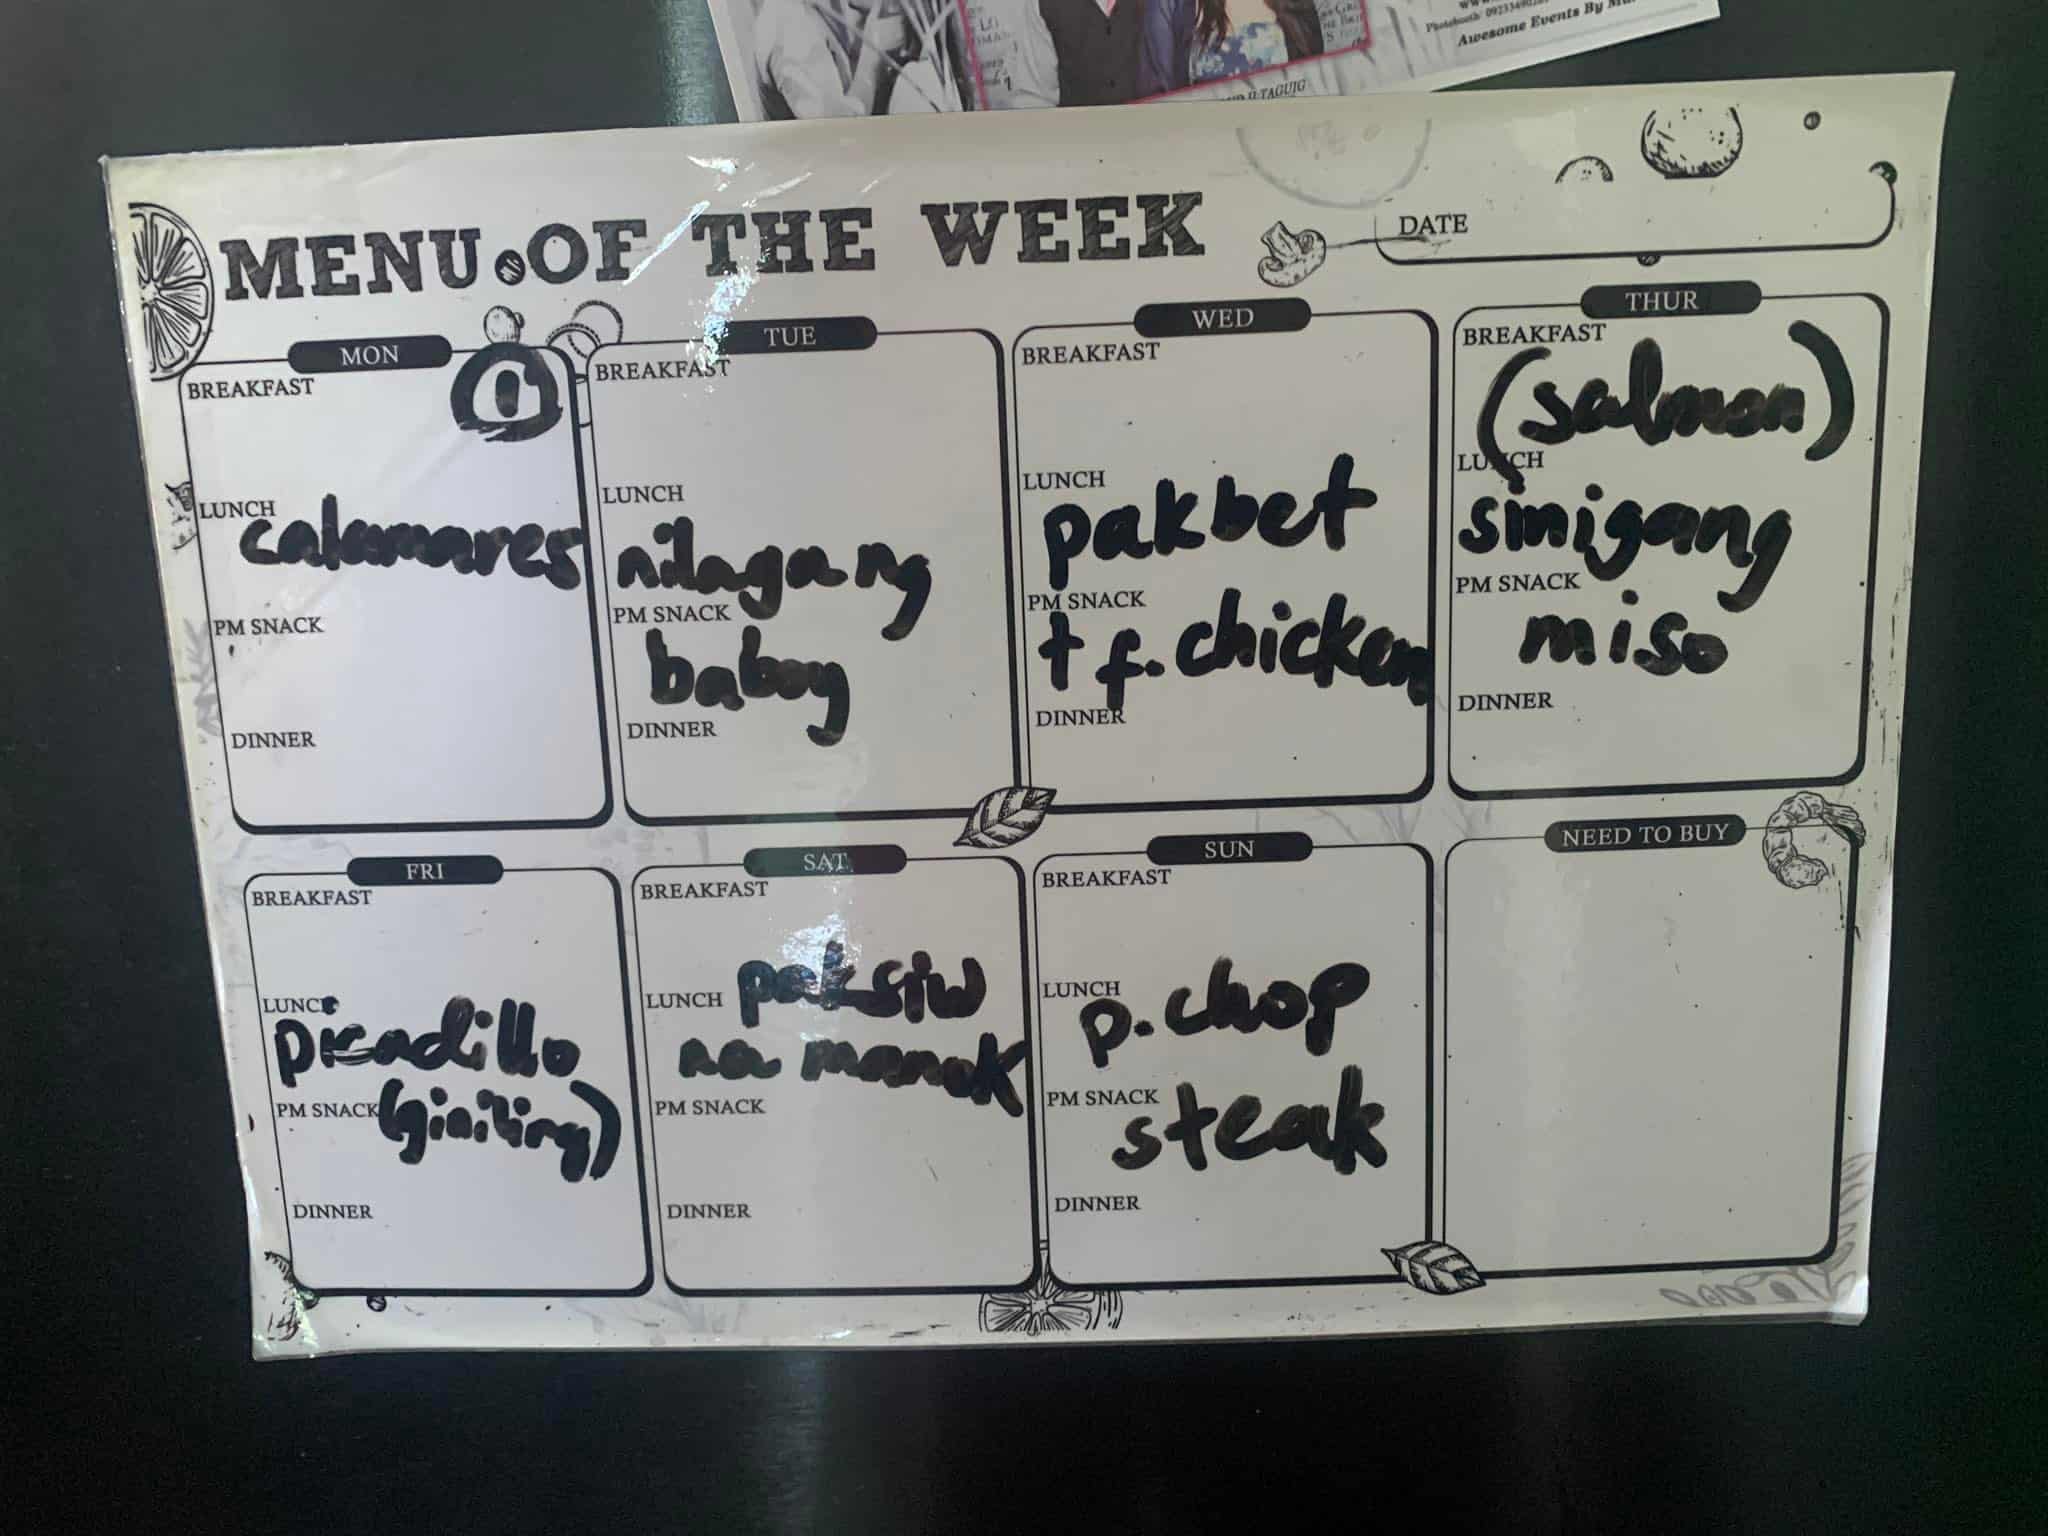 Photobooth: 09233490
Awesome Events By
TAGUIG
MENU OF THE WEEK
DATE
MON
BREAKFAST
1
LUNCH
calamares
PM SNACK
DINNER
TUE
BREAKFAST
LUNCH
nilagang
PM SNACK
baboy
DINNER
WED
BREAKFAST
LUNCH
pakbet
PM SNACK
+ f. chicken
DINNER
THUR
BREAKFAST
(salmon)
LUNCH
sinigang
PM SNACK
miso
DINNER
FRI
BREAKFAST
LUNCH
picadillo
PM SNACK
(giniling)
DINNER
SAT
BREAKFAST
LUNCH
paksiw
na manok
PM SNACK
DINNER
SUN
BREAKFAST
LUNCH
p. chop
PM SNACK
steak
DINNER
NEED TO BUY